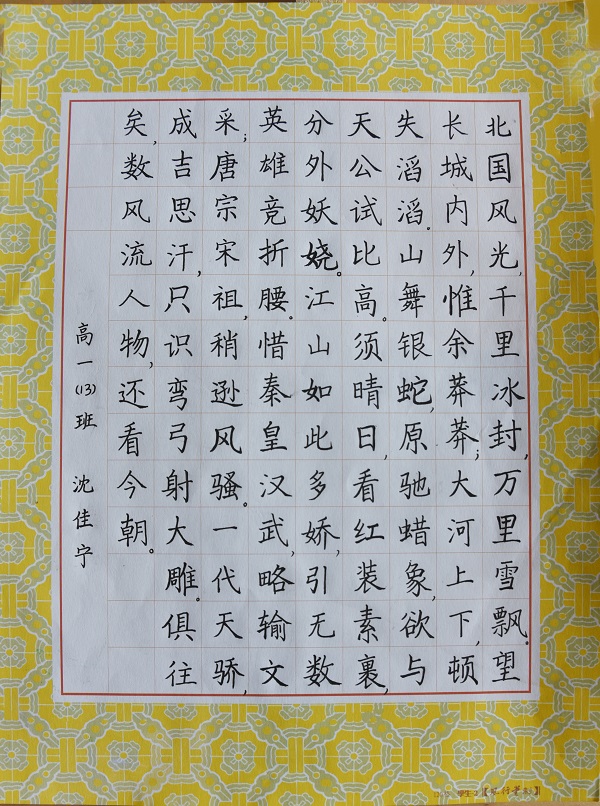 北国风光,千里冰封,万里雪飘。望
长城内外,惟余莽莽;大河上下,顿
失滔滔。山舞银蛇,原驰蜡象,欲与
天公试比高。须晴日,看红装素裹,
分外妖娆。江山如此多娇,引无数
英雄竞折腰。惜秦皇汉武,略输文
采;唐宗宋祖,稍逊风骚。一代天骄,
成吉思汗,只识弯弓射大雕。俱往
矣,数风流人物,还看今朝。
高一(13)班 沈佳宁